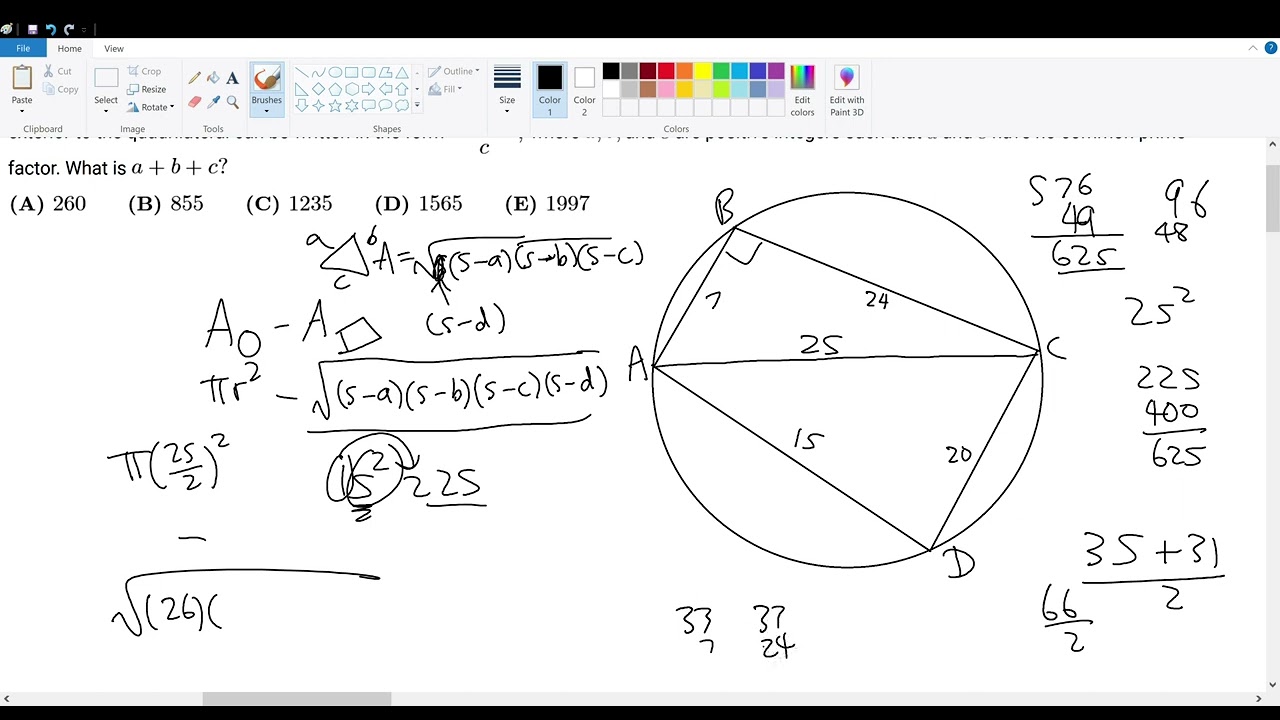 File Home View
Paste Cut Copy
Clipboard
Select Crop Resize Rotate
Image
Tools
Brushes
Outline Fill
Shapes
Size
Color 1
Color 2
Edit colors
Edit with Paint 3D
Colors
c
factor. What is a + b + c?
(A) 260 (B) 855 (C) 1235 (D) 1565 (E) 1997
a b c A = √(s-a)(s-b)(s-c)
(s-d)
A○ - A
πr² - √(s-a)(s-b)(s-c)(s-d)
π(25/2)²
15² 225
-
√(26)(
B
7
24
A
25
C
15
20
D
576
49
625
96
48
25²
225
400
625
35+31
2
66
2
33 33
7 24